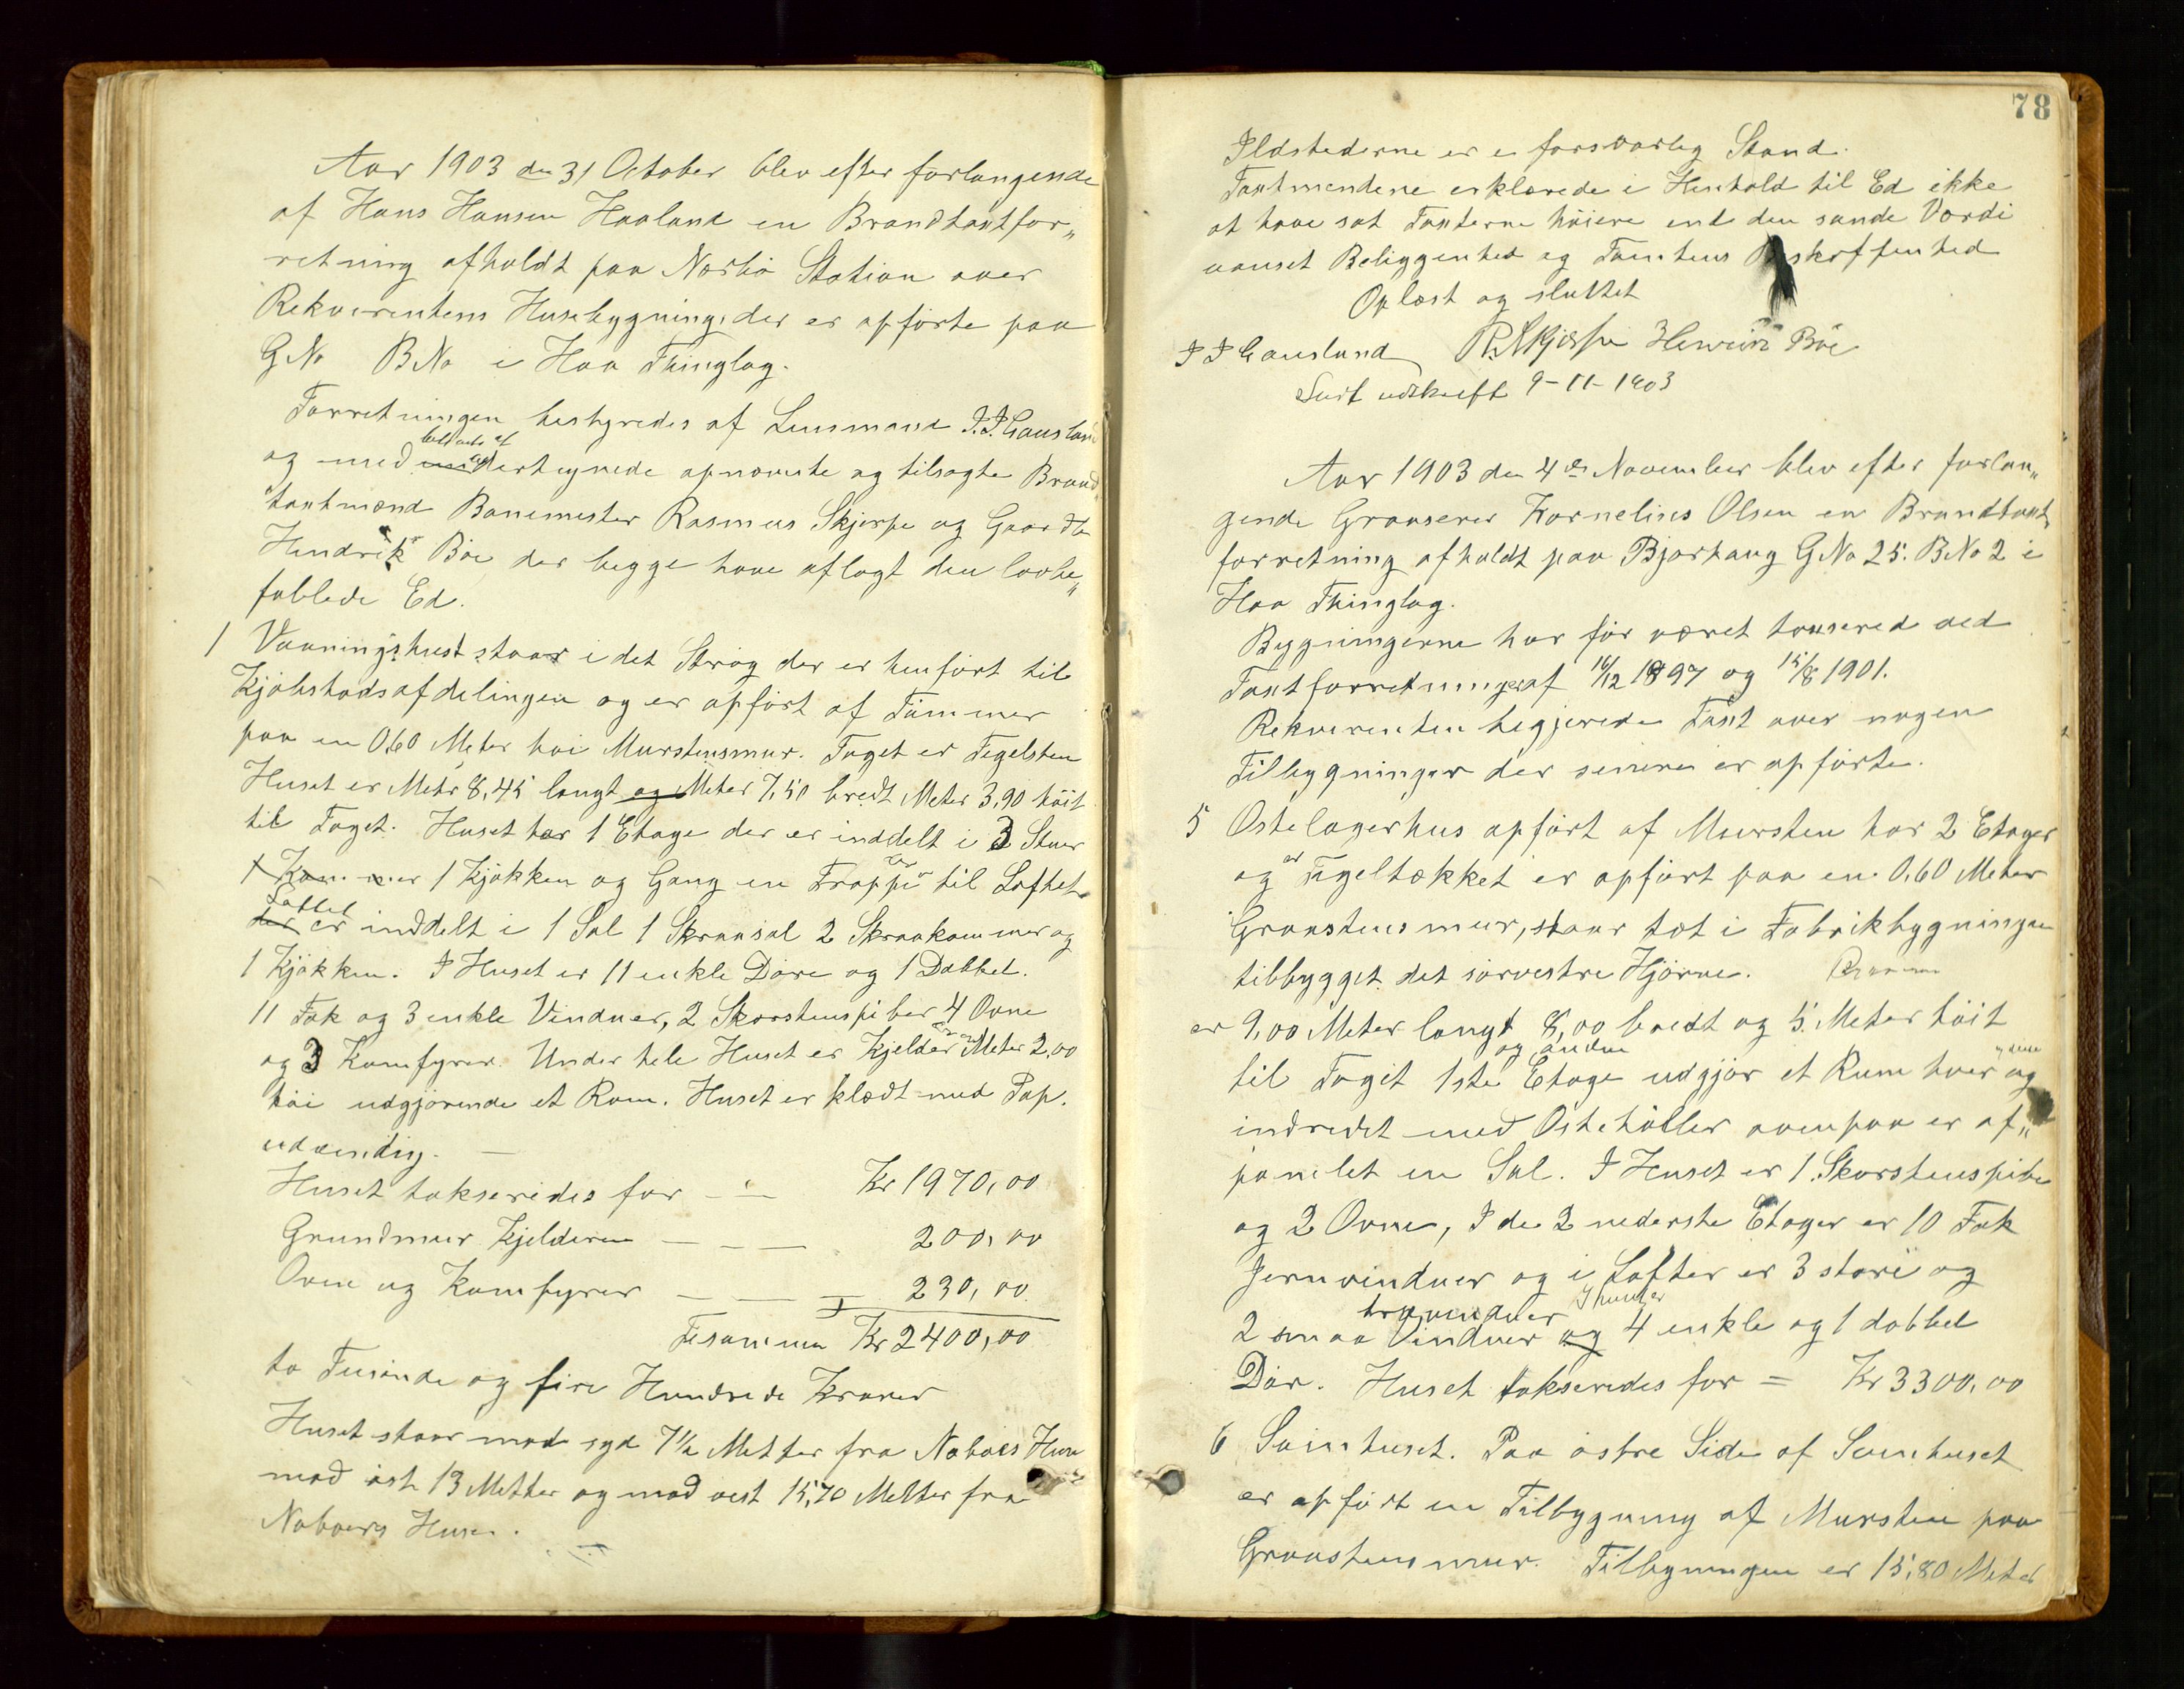 Aar 1903 den 31 October blev efter forlangende
af Hans Hansen Haaland en Brandtaxtfor„
retning afholdt paa Narbø Station over
Rekvirentens Husebygninger der er opførte paa
G No B No i Haa Thinglag.
Forretningen bestyredes af Lensmand J. J. Gausland
og med undertegnede opnævnte og tilsagte Brand
taxtmænd Banemester Rasmus Skjerpe og Gaardbr
Hendrik Bøe der begge have aflagt den lovbe„
falede Ed.
1 Vaaningshuset staar i det Strøg der er henført til
Kjøbstadsafdelingen og er opført af Tømmer
paa en 0,60 Meter høi Murstensmur. Taget er Tegelsten
Huset er Meter 8,45 langt og Meter 7,50 bredt Meter 3,90 høit
til Taget. Huset har 1 Etage der er inddelt i 3 Stuer
1 Kammer 1 Kjøkken og Gang en Trappe til Loftet
Loftet
der er inddelt i 1 Sal 1 Skraasal 2 Skraakammer og
1 Kjøkken. I Huset er 11 enkle Døre og 1 Dobbel.
11 Fak og 3 enkle Vinduer, 2 Skorstenspiber 4 Ovne
og 3 Komfyrer. Under hele Huset er Kjelder Meter 2,00
høi udgjørende et Rom. Huset er klædt med Pap.
udvendig. —
Huset takseredes for — — Kr 1970,00
Grundmur Kjelderen — — — 200,00
Ovne og Komfyrer — — — 230,00
Tilsammen Kr 2400,00
to Tusinde og fire Hundrede Kroner
Huset staar mod syd 7½ Metter fra Naboes Huse
mod øst 13 Metter og mod vest 15,70 Metter fra
Naboers Huse.
78
Ildstederne er i forsvarlig Stand.
Taxtmendene erklærede i Henhold til Ed ikke
at have sat Taxterne høiere end den sande Værdi
uanset Beliggenhed og Tomtens Beskaffenhed
Oplæst og sluttet
J J Gausland R. Skjerpe Henrik Bøe
Surt udskrift 9-11-1903
Aar 1903 den 4de November blev efter forlan„
gende Grosserer Kornelius Olsen en Brandtaxt
forretning afholdt paa Bjorhaug G No 25. B No 2 i
Haa Thinglag.
Bygningerne har før været taxsered ved
Taxtforretninger af 16/12 1897 og 15/8 1901.
Rekvirenten begjerede Taxt over nogen
Tilbygninger der senere er opførte.
5 Ostelagerhus opført af Mursten har 2 Etager
og er Tegeltækket er opført paa en 0,60 Meter
Graastensmur, staar tæt i Fabrikbygningen
tilbygget det sørvestre Hjørne.
er 9,00 Meter langt 8,00 bredt og 5 Meter høit
og anden
til Taget 1ste Etage udgjør et Rum hver og
indredet med Ostehøller ovenpaa er af„
panelet en Sal. I Huset er 1 Skorstenspibe
og 2 Ovne, I de 2 nederste Etager er 10 Fak
Jernvinduer og i Lofter er 3 store og
trævinduer I huset er
2 smaa Vinduer og 4 enkle og 1 dobbel
Dør. Huset takseredes for = Kr 3300,00
6 Svinhuset. Paa østre Side af Svinhuset
er opført en Tilbygning af Mursten paa
Graastensmur. Tilbygningen er 15,80 Meter